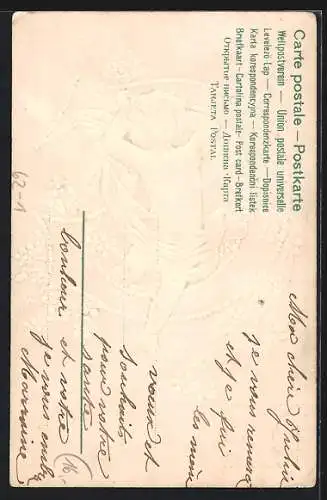 Carte postale — Postkarte
Weltpostverein — Union postale universelle
Levelező-Lap — Correspondenzkarte — Dopisnice
Karta korespondencyjna — Korespondenční lístek
Briefkaart - Cartolina postale - Post card - Brefkort
Открытое письмо — Дописна Карта
TARJETA POSTAL
62-1
Mon cher
je vous remerci
et je fui
les mien
voeux et
souhaits
pour votre
santé
bonheur et votre
je vous emb
Marraine
16.-